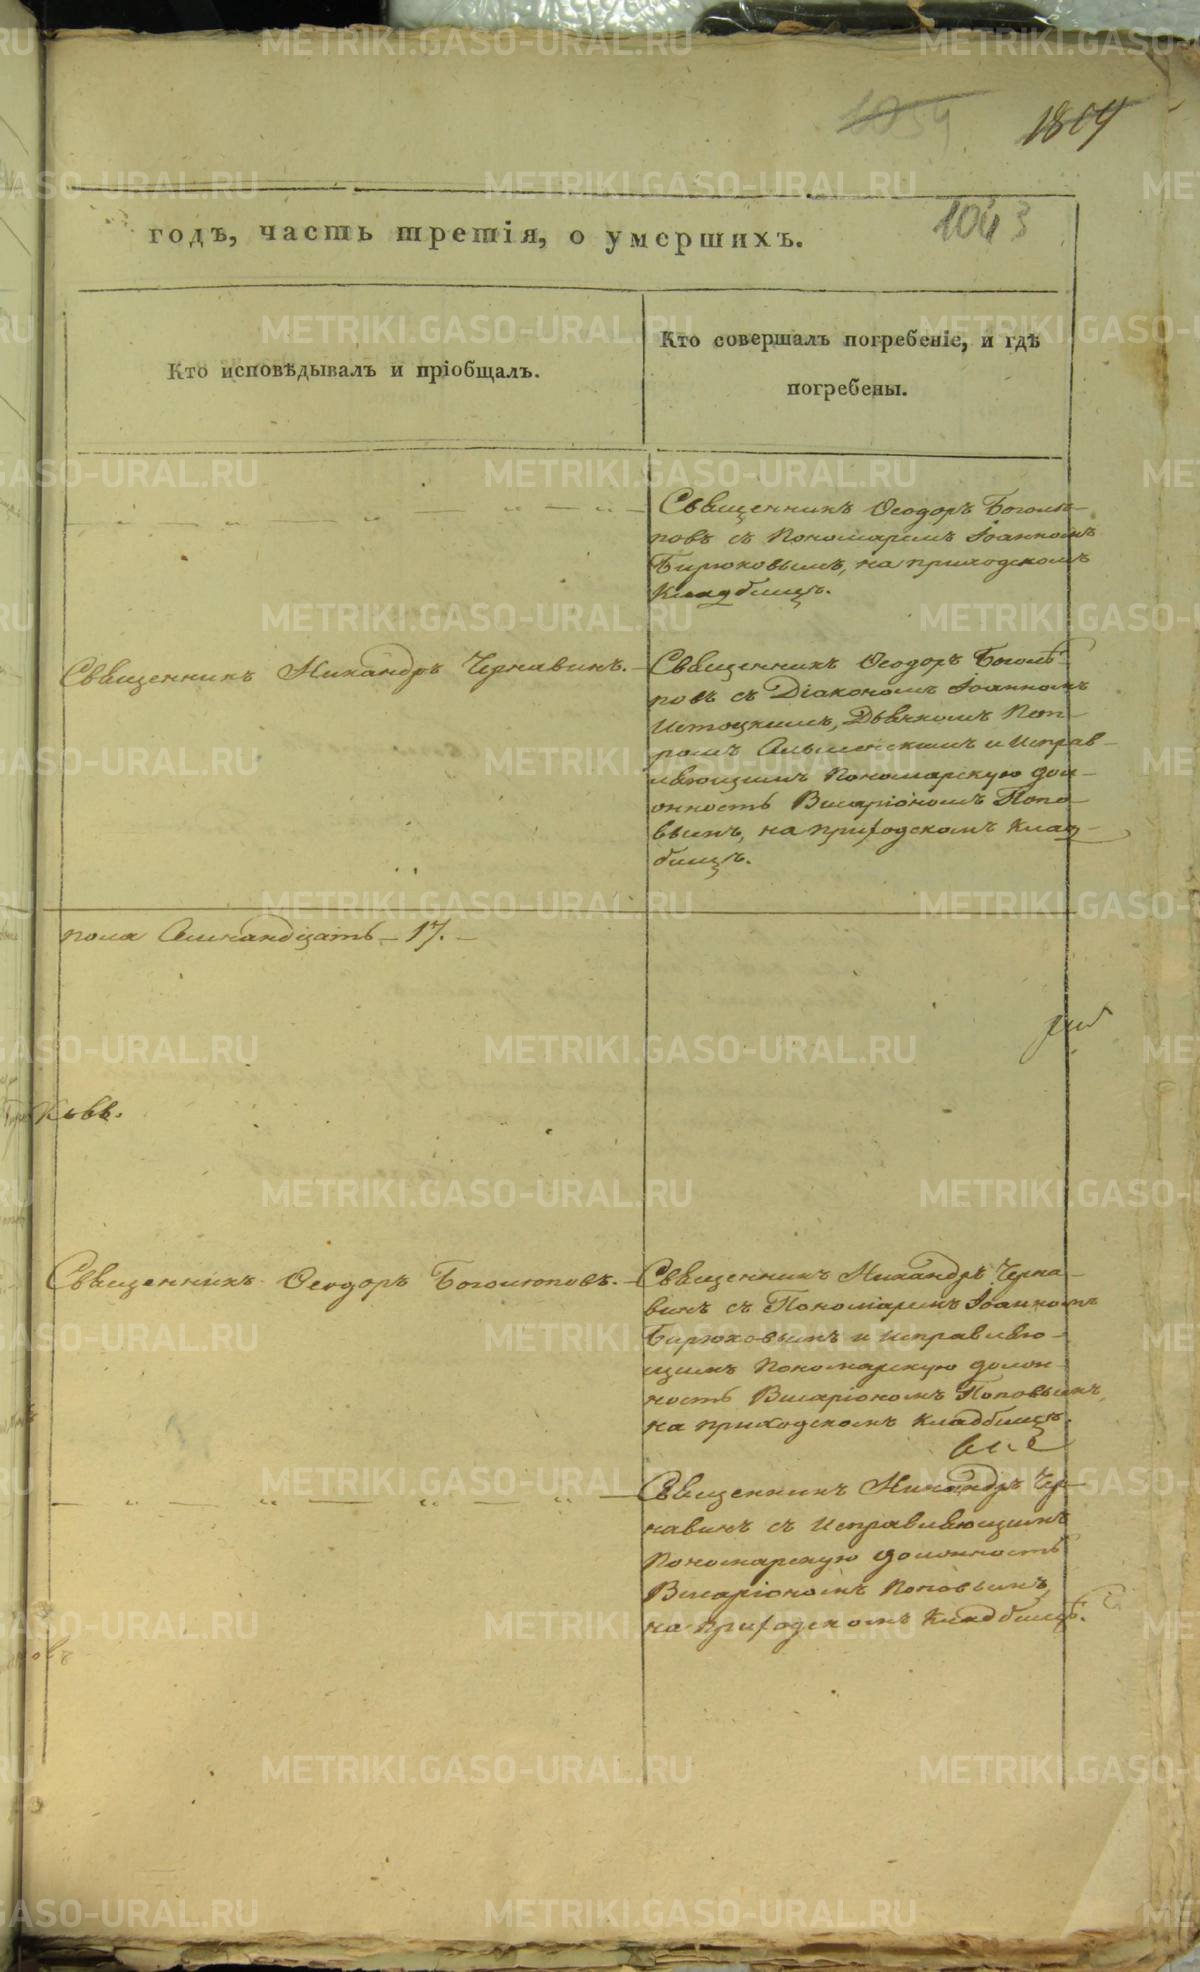 1054
1804
1043
годъ, часть третія, о умершихъ.
Кто исповѣдывалъ и пріобщалъ.
Кто совершалъ погребеніе, и гдѣ
погребены.
— „ — „ — „ — „ —
Священникъ Ѳеодоръ Боголѣ-
повъ съ Пономаремъ Іоанномъ
Бирюковымъ, на приходскомъ
Кладбищѣ.
Священникъ Никандръ Чернавинъ. —
Священникъ Ѳеодоръ Боголѣ-
повъ съ Діакономъ Іоанномъ
Истоцкимъ, Дьячкомъ Пет-
ромъ и исправ-
ляющимъ Пономарскую дол-
жность Виларіономъ Попо-
вымъ, на приходскомъ клад-
бищѣ.
пола Семнандцать — 17. —
Священникъ Ѳеодоръ Боголюповъ. —
Священникъ Никандръ Черна-
винъ съ Пономаремъ Іоанномъ
Бирюковымъ и исправляю-
щимъ Пономарскую долж-
ность Виларіономъ Поповымъ,
на приходскомъ кладбищѣ.
— „ — „ — „ — „ —
Священникъ Никандръ Чер-
навинъ съ исправляющимъ
Пономарскую должность
Виларіономъ Поповымъ,
на приходскомъ Кладбищѣ.
METRIKI.GASO-URAL.RU